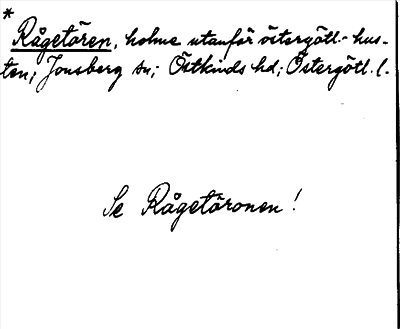 *
Rågetören, holme utanför östergötl.-kus-
ten; Jonsberg sn; Östkinds hd; Östergötl. l.
Se Rågetöronen!